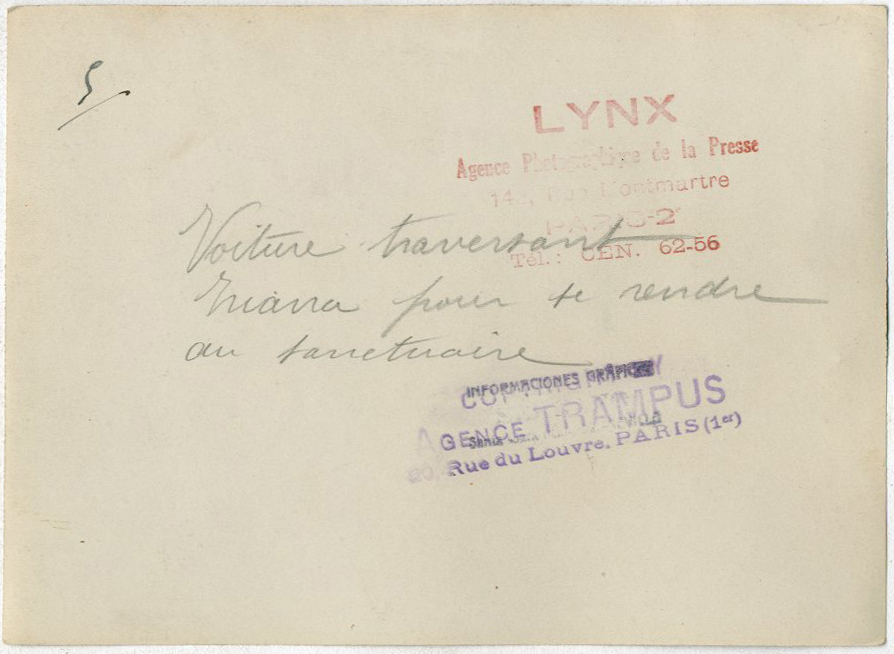 5
LYNX
Agence Photographique de la Presse
142, Rue Montmartre
PARIS-2e
Tél.: CEN. 62-56
Voiture traversant
Triana pour se rendre
au sanctuaire
INFORMACIONES GRÁFICAS
COPYRIGHT BY
AGENCE TRAMPUS
Rue du Louvre, PARIS (1er)